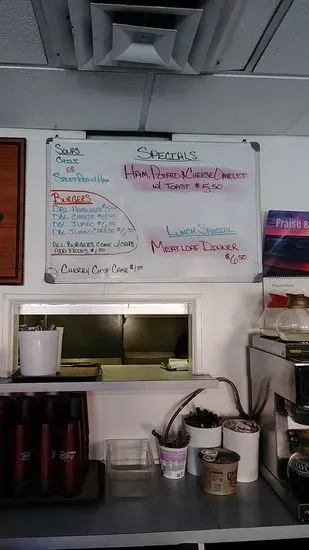 Soups
Chili
or
Split Pea w/ Ham
Burgers
Dbl Hamburger
Dbl Cheese
Dbl Jumbo $6.00
Dbl Jumbo Cheese
All Burgers Come w/ Chips
Add Fries $1.50
Cherry Chip Cake $1.50
Specials
Ham, Potato & Cheese Omelet
w/ Toast $5.50
Lunch Special
Meatloaf Dinner
$6.50
Praise